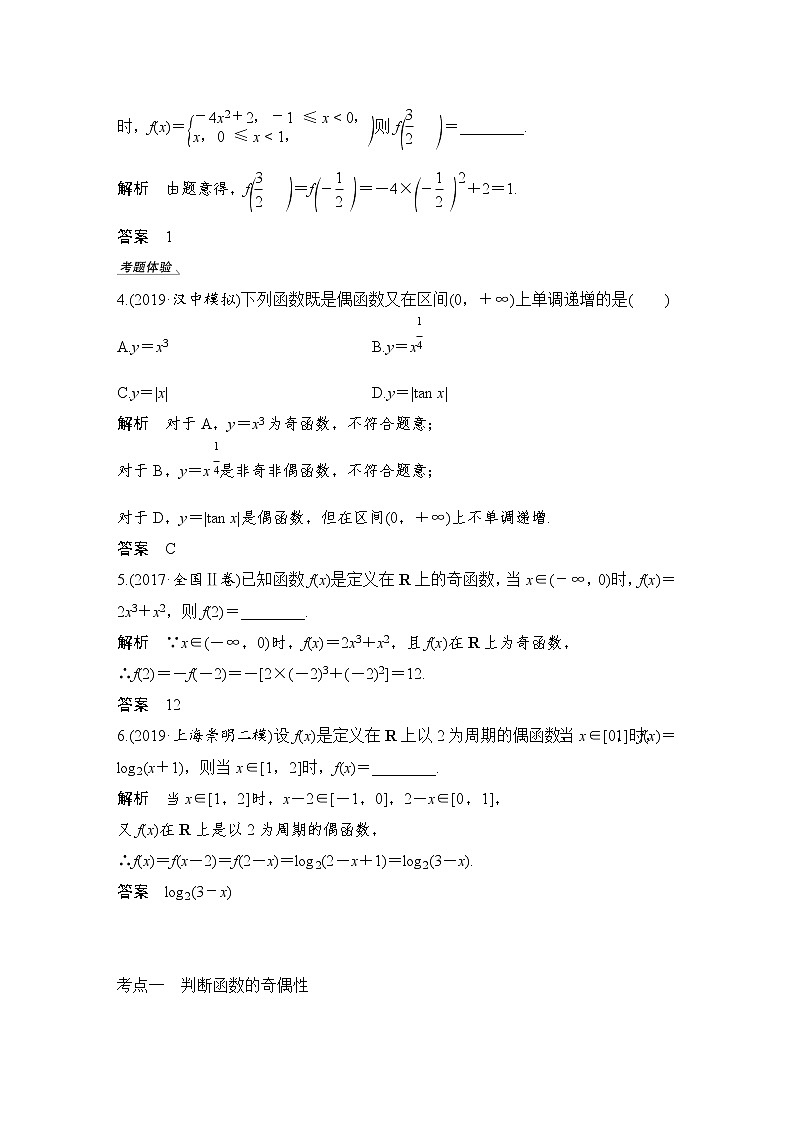 时，f(x)＝{－4x²＋2，－1≤x＜0，x，0≤x＜1，则f(3/2)＝________.
解析　由题意得，f(3/2)＝f(－1/2)＝－4×(－1/2)²＋2＝1.
答案　1
考题体验
4.(2019·汉中模拟)下列函数既是偶函数又在区间(0，＋∞)上单调递增的是(　　)
A.y＝x³　B.y＝x^(1/4)
C.y＝|x|　D.y＝|tan x|
解析　对于A，y＝x³为奇函数，不符合题意；
对于B，y＝x^(1/4)是非奇非偶函数，不符合题意；
对于D，y＝|tan x|是偶函数，但在区间(0，＋∞)上不单调递增.
答案　C
5.(2017·全国Ⅱ卷)已知函数f(x)是定义在R上的奇函数，当x∈(－∞，0)时，f(x)＝
2x³＋x²，则f(2)＝________.
解析　∵x∈(－∞，0)时，f(x)＝2x³＋x²，且f(x)在R上为奇函数，
∴f(2)＝－f(－2)＝－[2×(－2)³＋(－2)²]＝12.
答案　12
6.(2019·上海崇明二模)设f(x)是定义在R上以2为周期的偶函数，当x∈[0，1]时，f(x)＝
log₂(x＋1)，则当x∈[1，2]时，f(x)＝________.
解析　当x∈[1，2]时，x－2∈[－1，0]，2－x∈[0，1]，
又f(x)在R上是以2为周期的偶函数，
∴f(x)＝f(x－2)＝f(2－x)＝log₂(2－x＋1)＝log₂(3－x).
答案　log₂(3－x)
考点一　判断函数的奇偶性